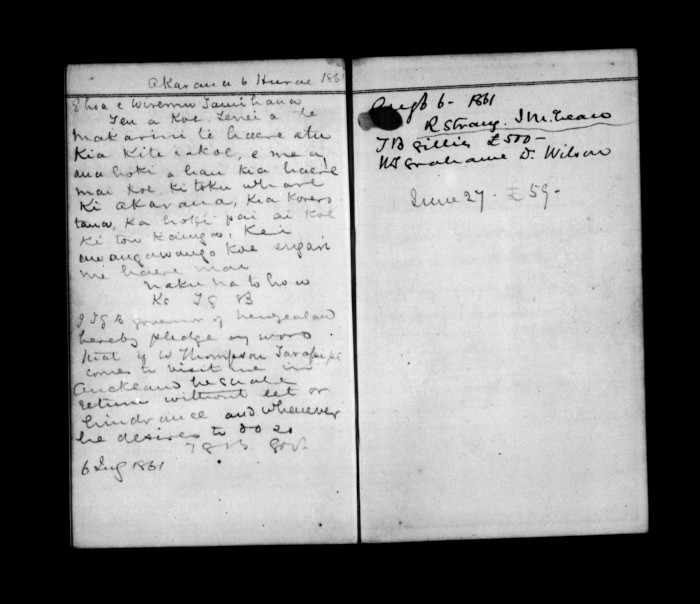 Akarana 6 Hurae 1861
E hoa e Wiremu Tamihana
Tena Koe. Tenei a te
Makarini te haere atu
Kia Kite i a Koe, e mea
ana hoki a hau kia haere
mai Koe Ki toku whare
Ki Akarana, Kia Korero
taua, Ka hoki pai ai Koe
Ki tou Kainga, Kei
awangawanga Koe engari
me haere mai
Naku na to hoa
Ka T G B
I TGB governor of Newzealand
hereby pledge my word
that if W Thompson Tarapipi
comes to visit me in
Auckland he shall
return without let or
hindrance and whenever
he desires to do so
T G B Gov.
6 July 1861
6 - 1861
R Strang. J McLean
TB Gillies £500 -
Grahame D. Wilson
June 27 - £59 -